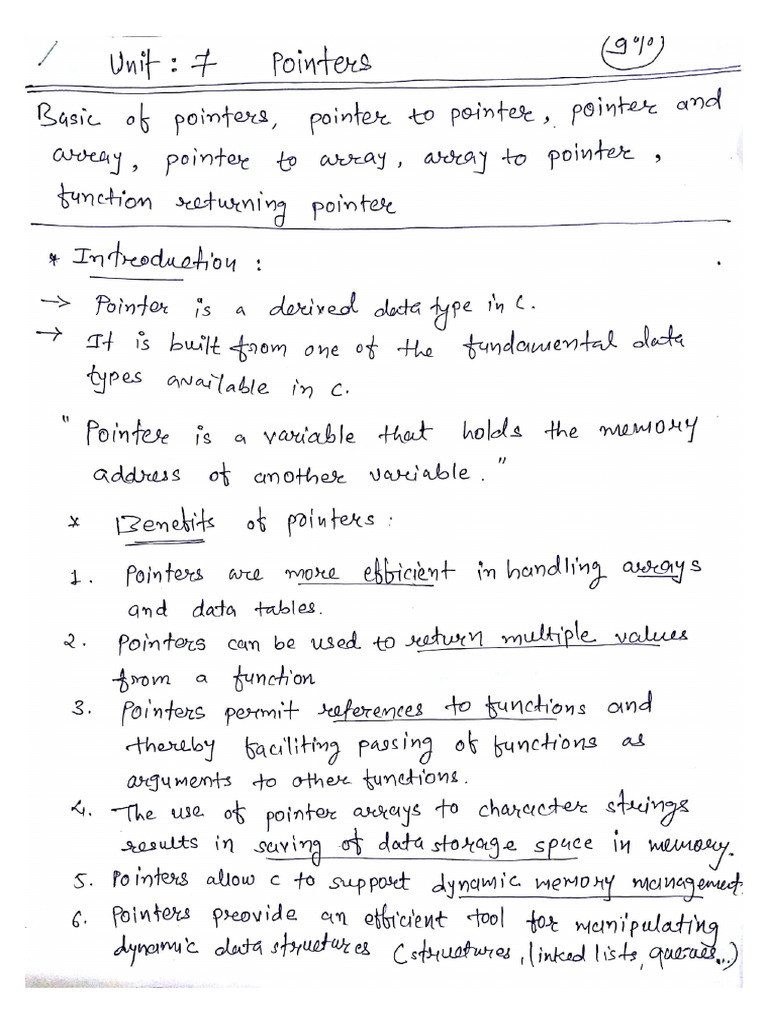 Unit : 7 Pointers 9%
Basic of pointers, pointer to pointer, pointer and
array, pointer to array, array to pointer,
function returning pointer
* Introduction :
→ Pointer is a derived data type in C.
→ It is built from one of the fundamental data
types available in C.
"Pointer is a variable that holds the memory
address of another variable."
* Benefits of pointers :
1. Pointers are more efficient in handling arrays
and data tables.
2. Pointers can be used to return multiple values
from a function
3. Pointers permit references to functions and
thereby faciliting passing of functions as
arguments to other functions.
4. The use of pointer arrays to character strings
results in saving of data storage space in memory.
5. Pointers allow C to support dynamic memory management.
6. Pointers provide an efficient tool for manipulating
dynamic data structures (structures, linked lists, queues...)